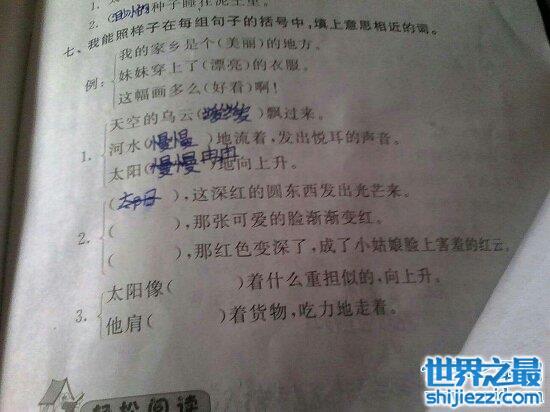 2. (     )种子睡在泥土里。
七、我能照样子在每组句子的括号中,填上意思相近的词。
例:
我的家乡是个(美丽)的地方。
妹妹穿上了(漂亮)的衣服。
这幅画多么(好看)啊!
1.
天空的乌云(     )飘过来。
河水(慢慢)地流着,发出悦耳的声音。
太阳(慢慢冉冉)地向上升。
2.
(太阳),这深红的圆东西发出光芒来。
(     ),那张可爱的脸渐渐变红。
(     ),那红色变深了,成了小姑娘脸上害羞的红云。
3.
太阳像(     )着什么重担似的,向上升。
他肩(     )着货物,吃力地走着。
轻松阅读
世界之最
shijiezzl.com